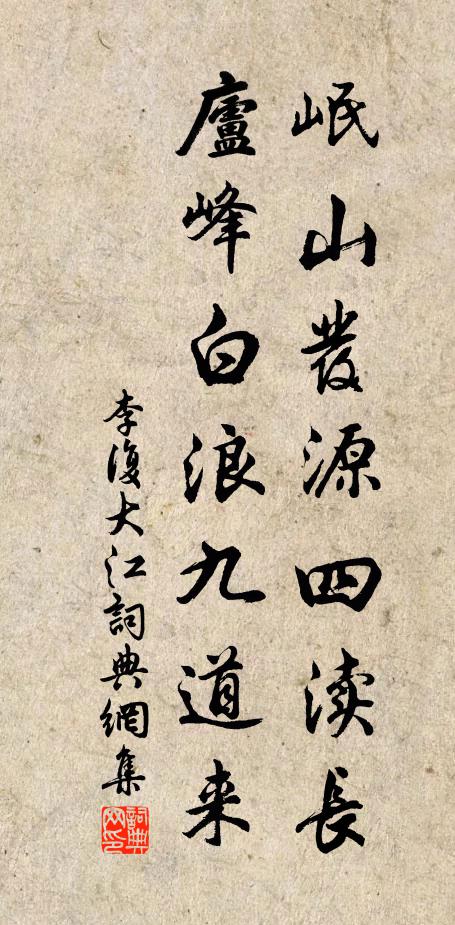 岷山發源四渎長
廬峰白浪九道来
李復大江詞典網集
詞典网印